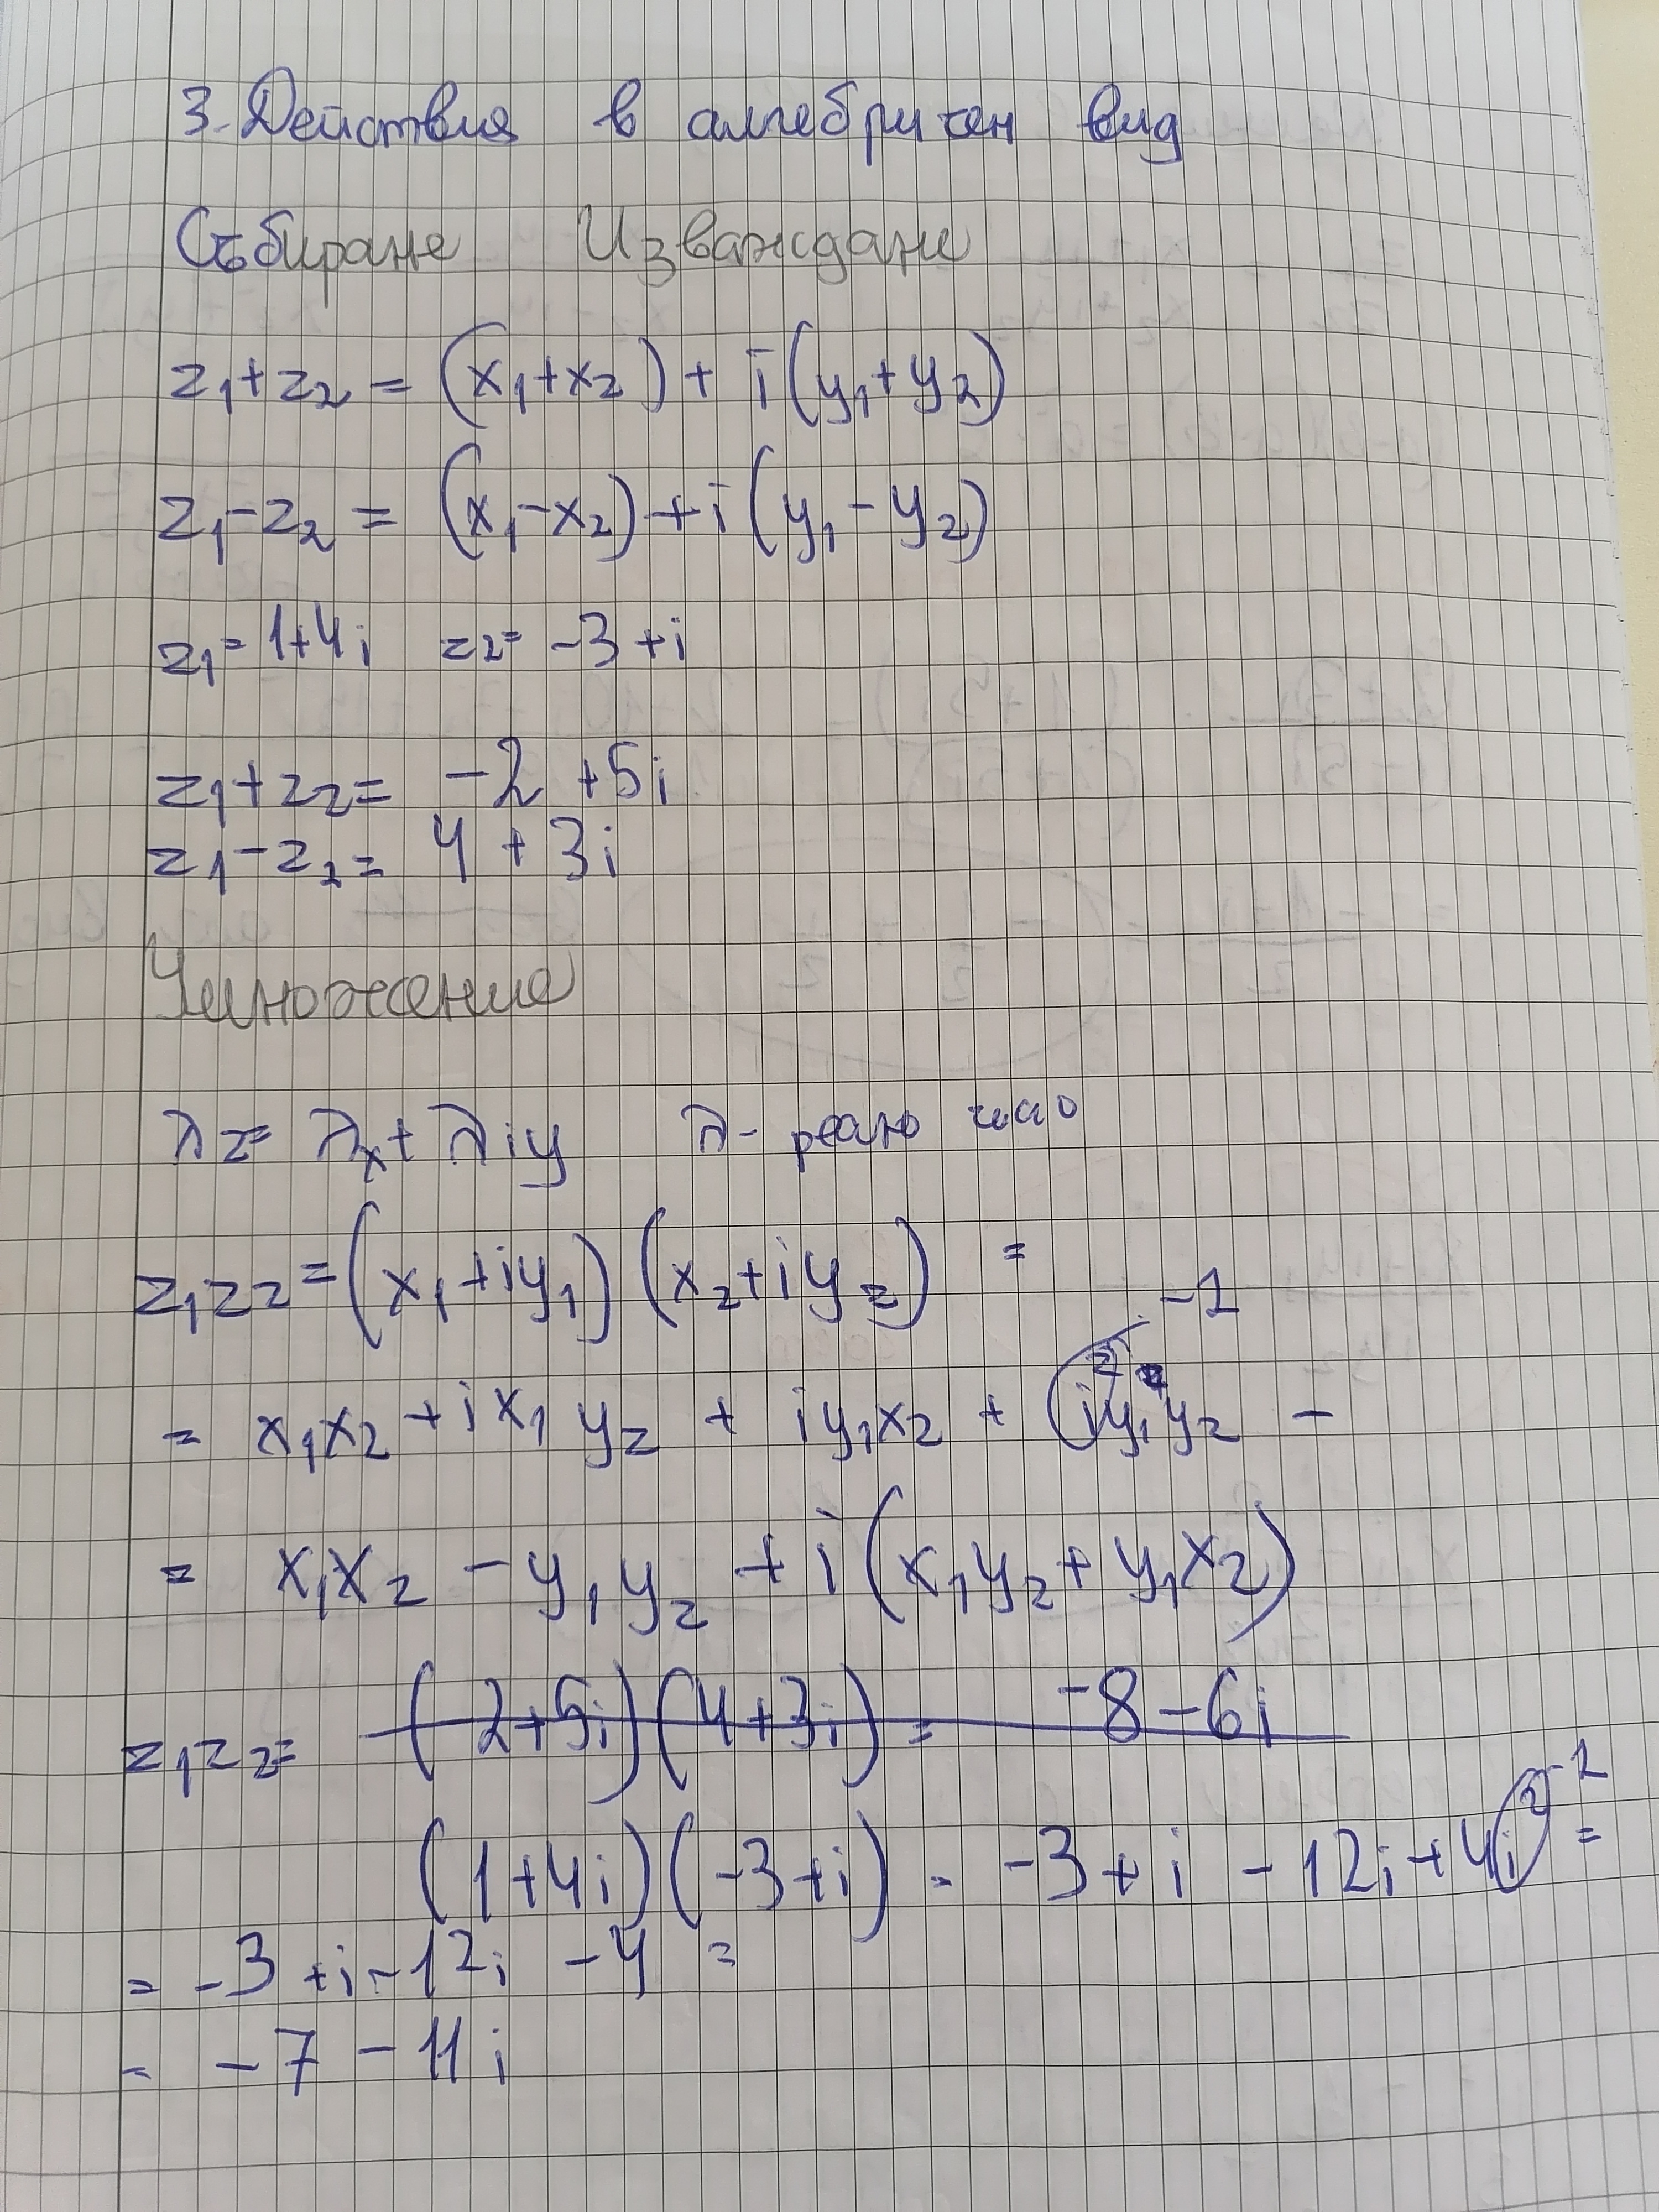 3. Действия в алгебричен вид
Събиране Изваждане
z₁+z₂ = (x₁+x₂) + i(y₁+y₂)
z₁-z₂ = (x₁-x₂)+i(y₁-y₂)
z₁= 1+4i z₂= -3+i
z₁+z₂= -2 +5i
z₁-z₂= 4 + 3i
Умножение
λz= λx+ λiy λ- реално число
z₁z₂=(x₁+iy₁)(x₂+iy₂) =
-1
= x₁x₂ + ix₁y₂ + iy₁x₂ + i²y₁y₂ =
= x₁x₂ - y₁y₂ + i(x₁y₂+y₁x₂)
z₁z₂= (2+5i)(4+3i)= -8-6i
-1
(1+4i)(-3+i) = -3+i - 12i+4i² =
= -3+i-12i -4 =
= -7-11i